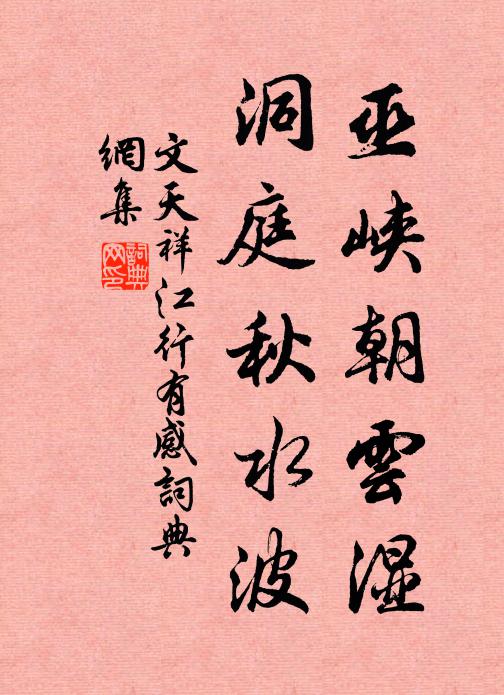 巫峽朝雲濕
洞庭秋水波
文天祥江行有感詞典
網集
詞典
网印